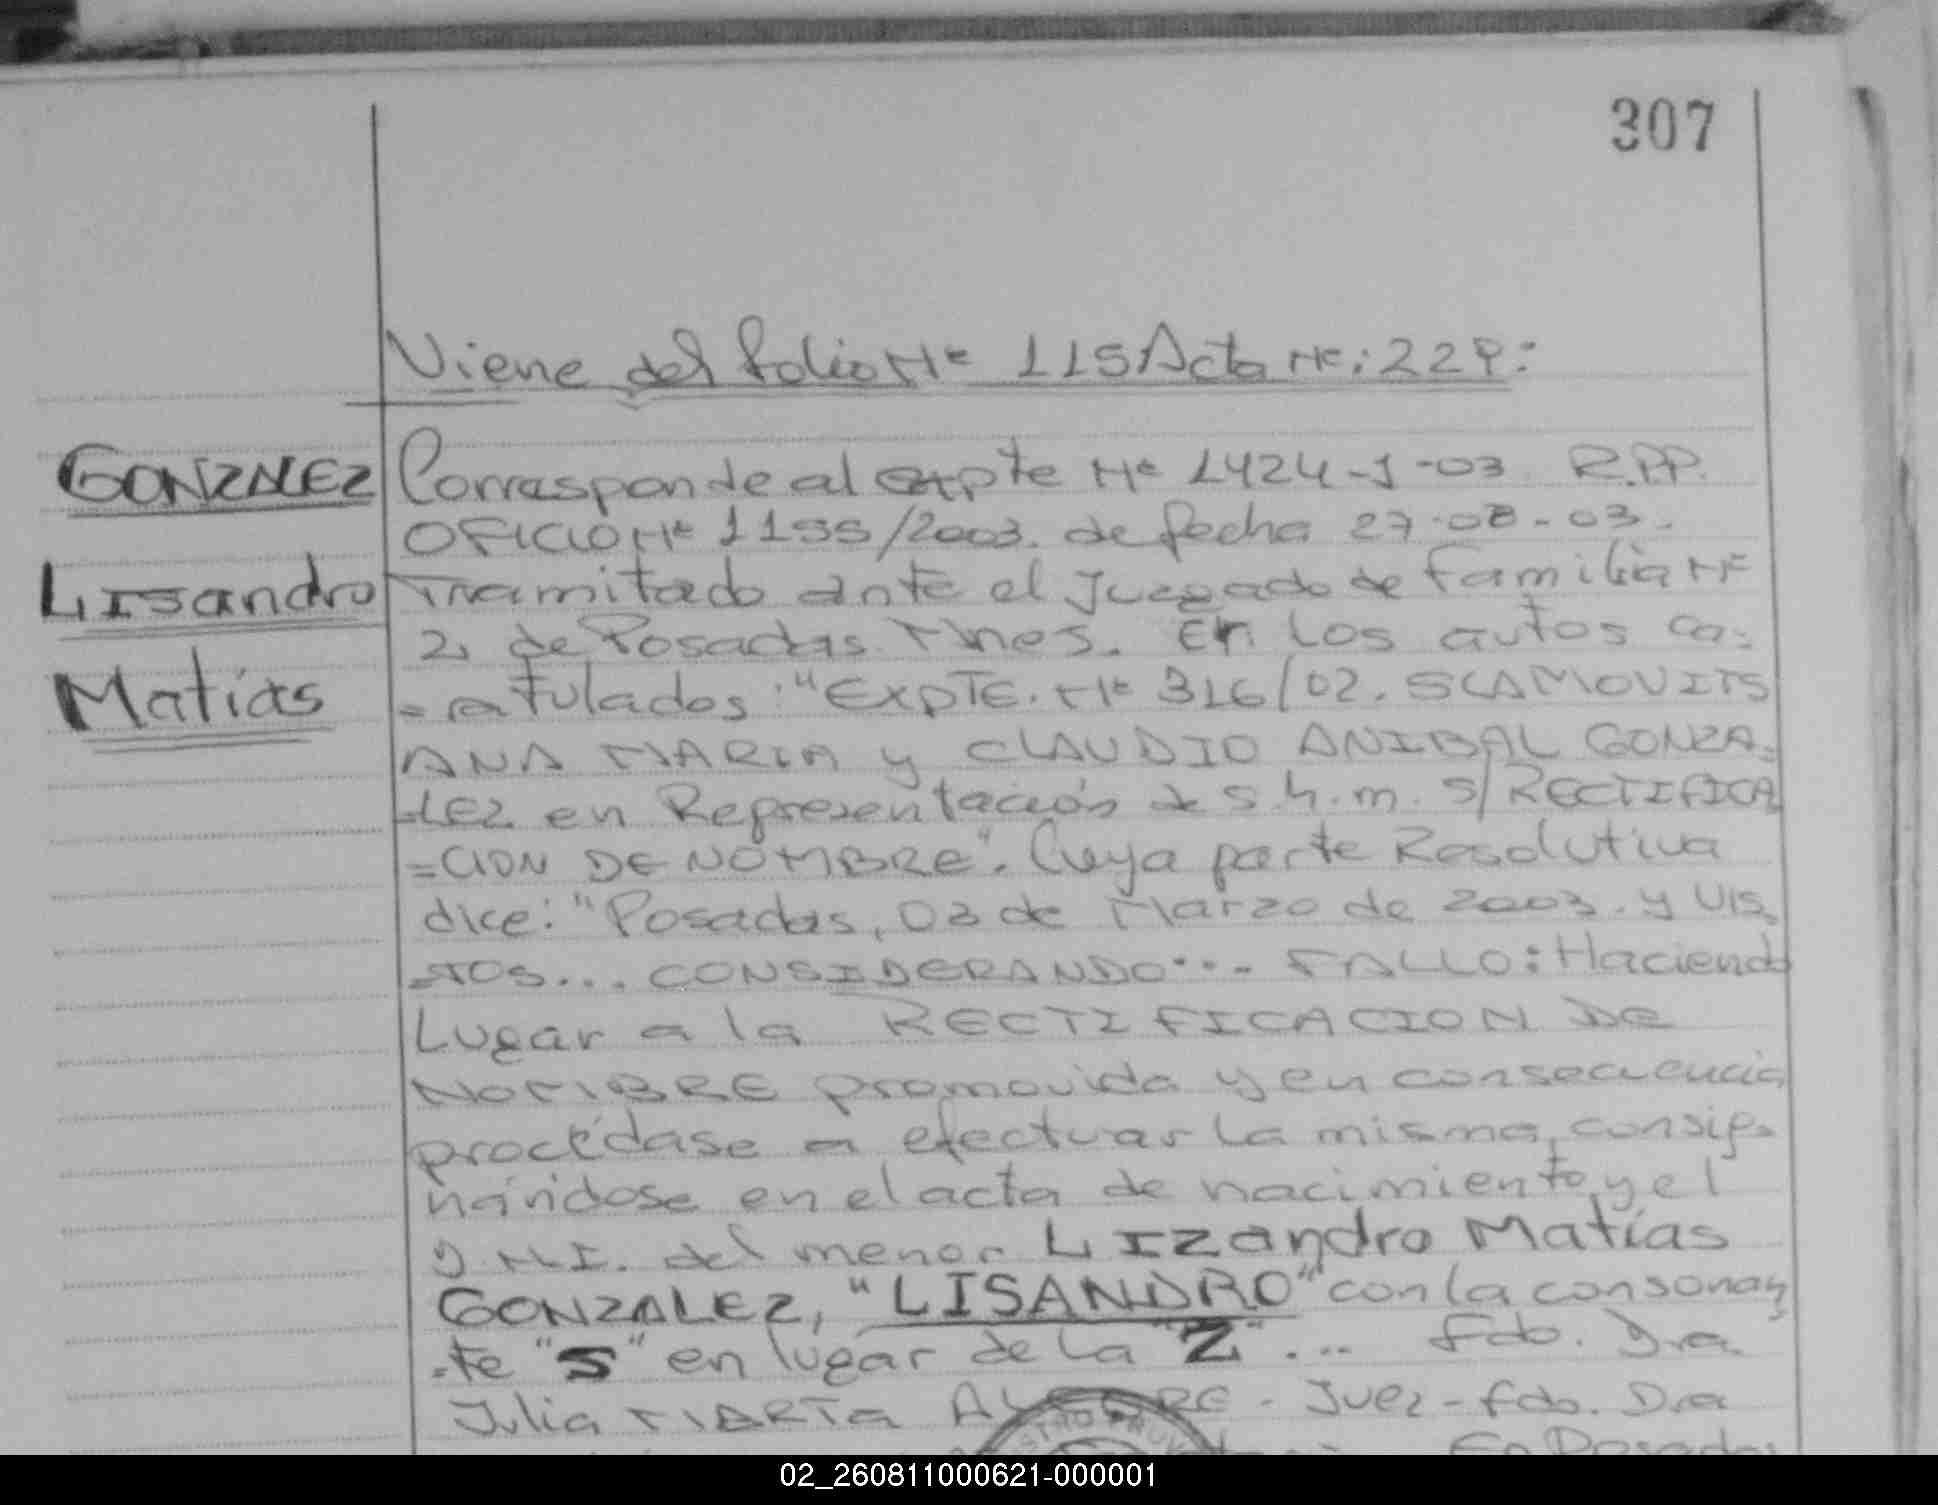 307
Viene del folio Nº 115 Acta Nº: 229:
GONZALEZ
Lisandro
Matias
Corresponde al expte Nº 1424-J-03 R.P.P.
OFICIO Nº 1155/2003. de fecha 27-08-03.
Tramitado ante el Juzgado de Familia Nº
2, de Posadas Mnes. En Los autos ca-
=ratulados: "EXPTE. Nº 316/02. SLAMOVITS
ANA MARIA y CLAUDIO ANIBAL GONZA=
-LEZ en Representación de s.h.m. S/RECTIFICA
=CION DE NOMBRE". Cuya parte Resolutiva
dice: "Posadas, 03 de Marzo de 2003. y VIS.
=TOS... CONSIDERANDO... FALLO: Haciendo
Lugar a la RECTIFICACION DE
NOMBRE promovida y en consecuencia
procédase a efectuar la misma, consig-
nándose en el acta de nacimiento, y el
D.N.I. del menor LIZandro Matías
GONZALEZ, "LISANDRO" con la consonan
-te "S" en lugar de la "Z"... Fdo. Dra.
Julia MARTA ALEGRE - Juez - fdo. Dra
En Posadas
02_260811000621-000001